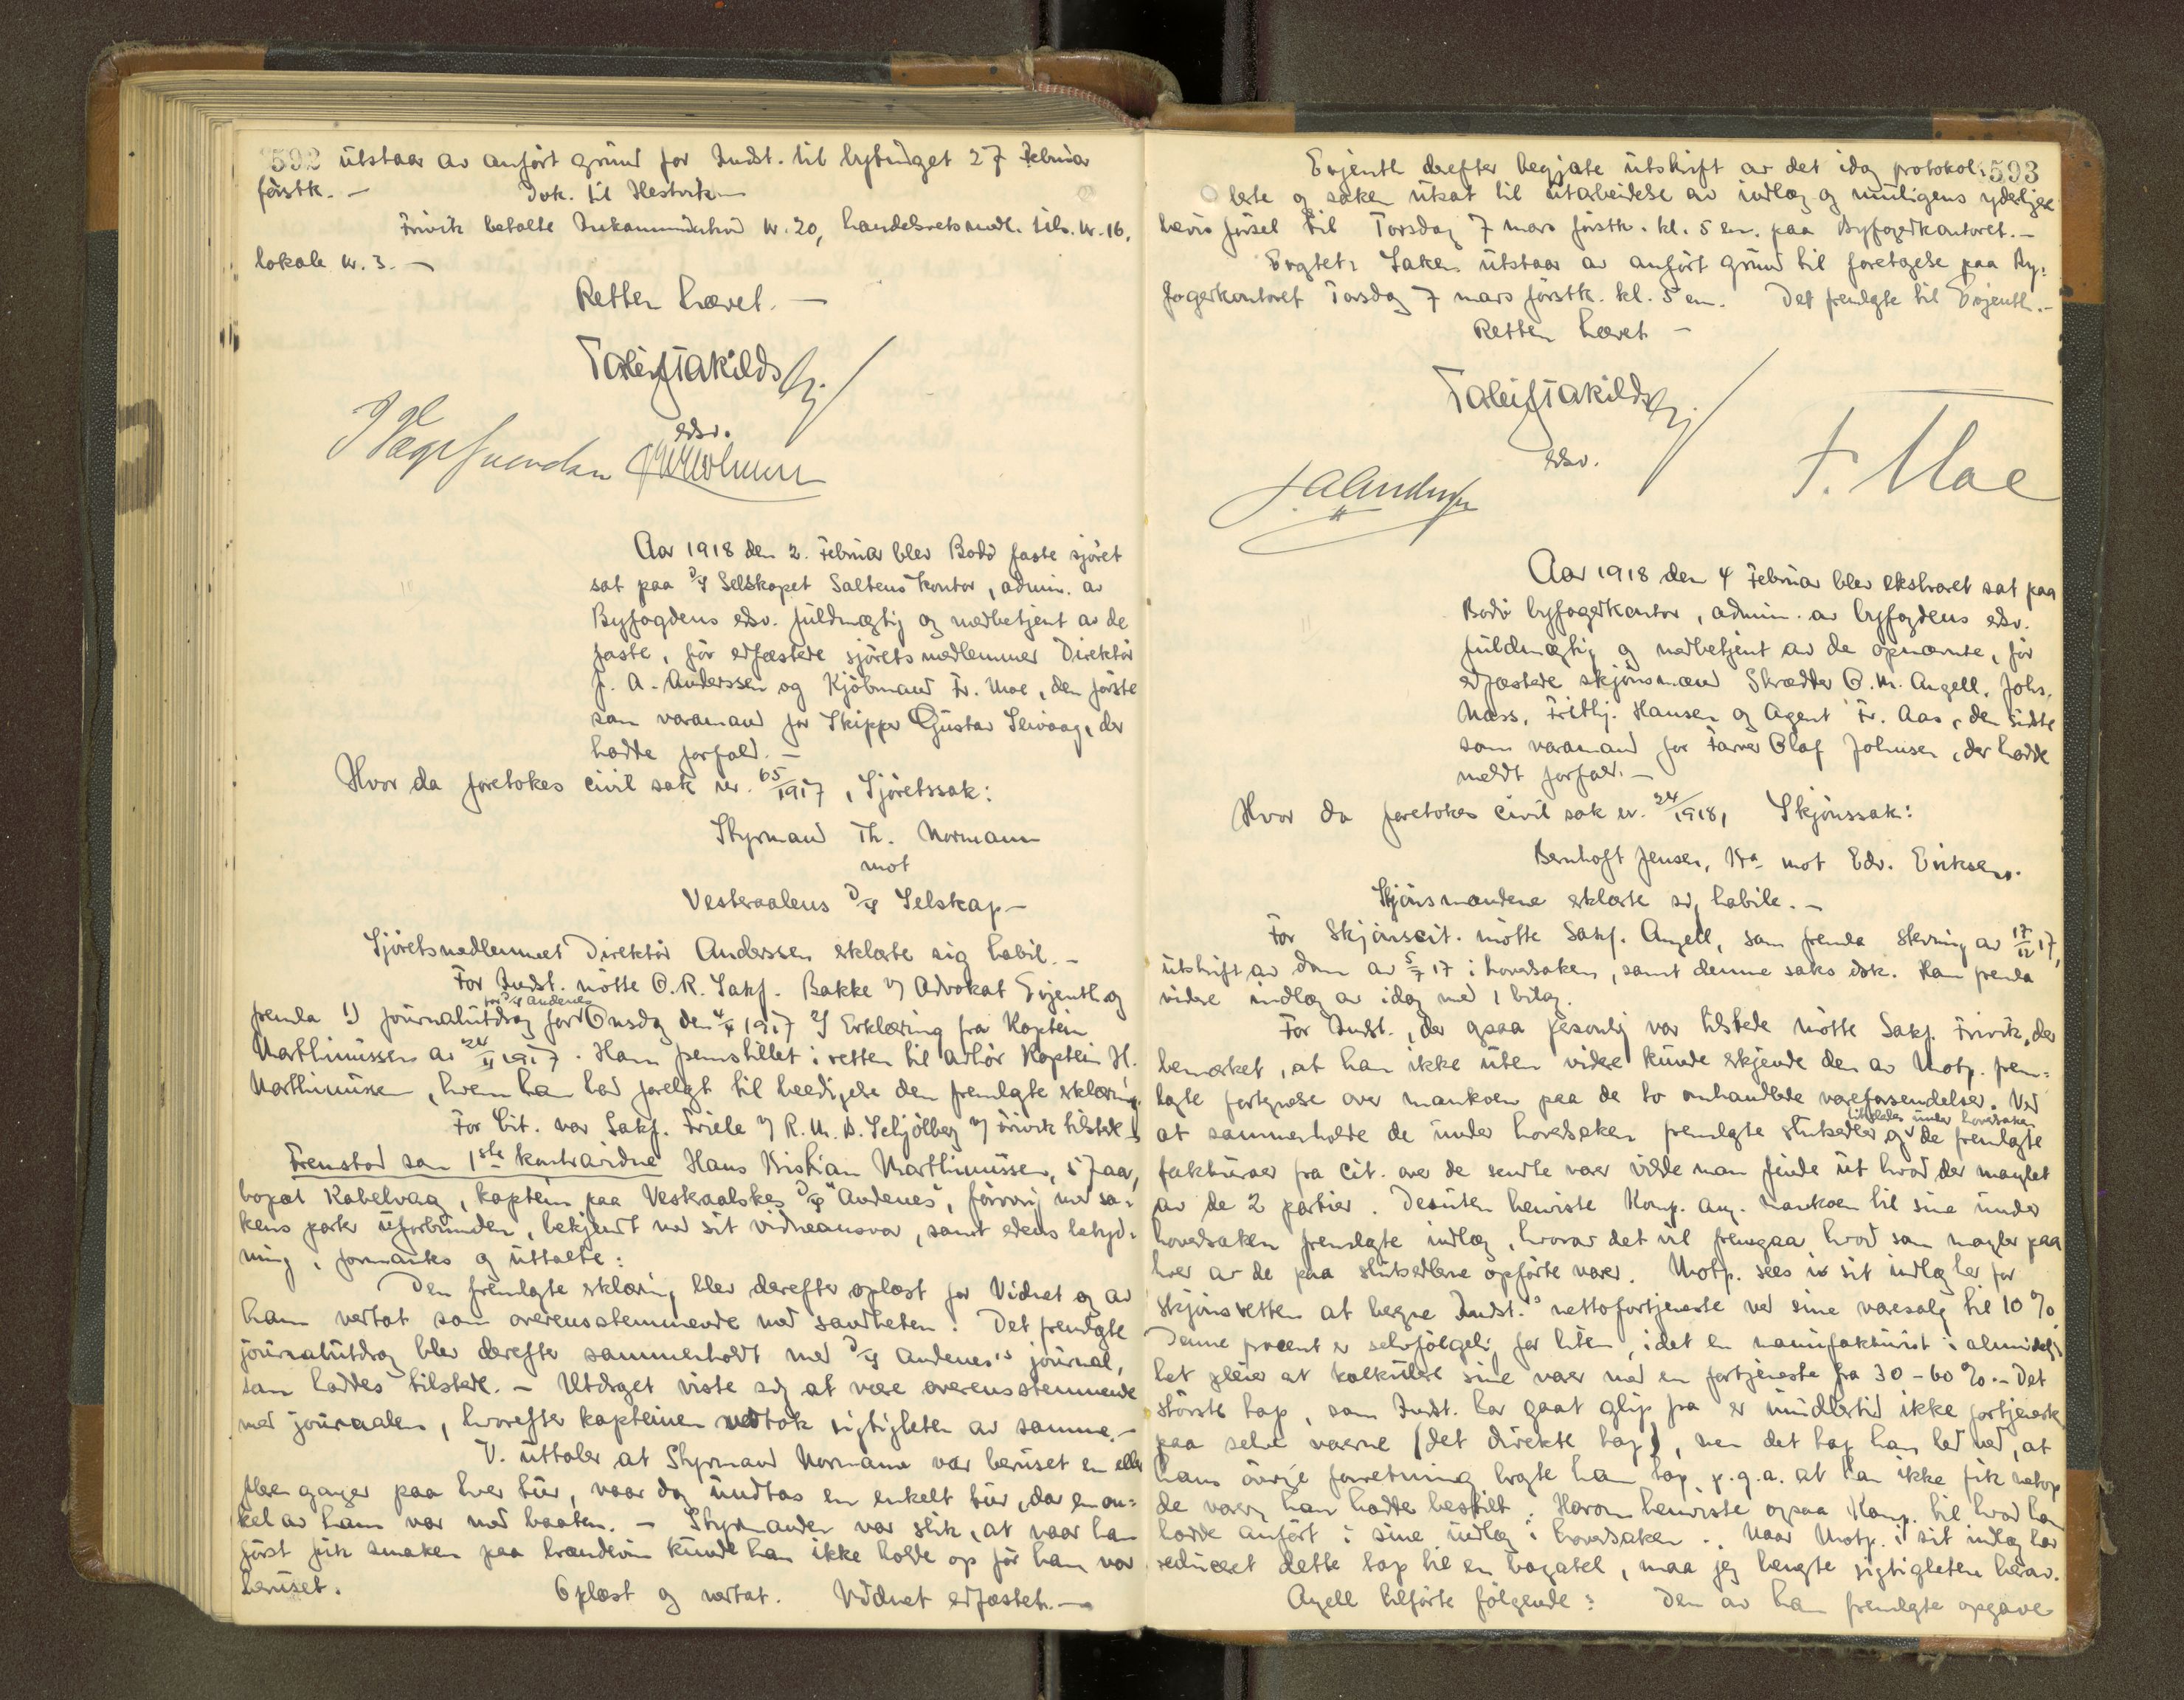 592 utstaar av anført grund for Indst. til bytinget 27 Februar
førstk. — Dok. til Hestvik —
Frivik betalte Inkaminationd kr. 20, handelsretsmedl. tils. kr. 16,
lokale kr. 3. —
Retten hævet. —
edsv.
Aar 1918 den 2. Februar blev Bodø faste sjøret
sat paa D/S Selskapet Saltens kontor, admin. av
Byfogdens edsv. fuldmægtig og medbetjent av de
faste, før edfæstede sjøretsmedlemmer Direktør
J. A. Anderssen og Kjøbmand Fr. Moe, den første
som varamand for Skipper Gustav Seivaag, der
hadde forfald. —
Hvor da foretokes civil sak nr. 65/1917, Sjøretssak:
Styrmand Th. Normann
mot
Vesteraalens D/S Selskap —
Sjøretsmedlemmet Direktør Anderssen erklærte sig habil. —
For Indst. møtte O.R. Sakf. Bakke v/ Advokat Evjenth og
for D/S Andenes
fremla 1) journalutdrag for Onsdag den 4/4 1917 2) Erklæring fra Kaptein
Marthinussen av 24/11 1917. Han fremstillet i retten til avhør Kaptein H.
Marthinussen, hvem han lod forelagt til beedigelse den fremlagte erklæring.
For Cit. var Sakf. Friele v/ R. M. B. Schjølberg v/ Frivik tilstede —
Fremstod som 1ste kontravidne Hans Kristian Marthinussen, 57 aar,
bopæl Kabelvaag, kaptein paa Vesteraalskes D/S "Andenes", forøvrig med sa-
kens parter uforbunden, bekjendt med sit vidneansvar, samt edens betyd-
ning, formantes og uttalte:
Den fremlagte erklæring blev derefter oplæst for Vidnet og av
ham vedtat som overensstemmende med sandheten. Det fremlagte
journalutdrag blev derefter sammenholdt med D/S Andenes's journal,
som haddes tilstede. — Utdraget viste sig at være overensstemmende
med journalen, hvorefter kapteinen vedtok rigtigheten av samme. —
V. uttaler at Styrmand Normann var beruset en eller
flere ganger paa hver tur, naar dog undtas en enkelt tur, da en on-
kel av ham var med baaten. — Styrmanden var slik, at naar han
først fik smaken paa brændevin kunde han ikke holde op før han var
beruset. Oplæst og vedtat. Vidnet edfæstet. —
Evjenth derefter begjærte utskrift av det idag protokol- 593
lerte og saken utsat til utarbeidelse av indlæg og muligens yderligere
bevisførsel til Torsdag 7 mars førstk. kl. 5 em. paa Byfogdkontoret. —
Evgtet: Saken utstaar av anført grund til foretagelse paa By-
fogdkontoret Torsdag 7 mars førstk. kl. 5 em. Det fremlagte til Evjenth. —
Retten hævet —
edsv.
J. A. Anderssen F. Moe
Aar 1918 den 4 Februar blev ekstraret sat paa
Bodø byfogdkontor, admin. av byfogdens edsv.
fuldmægtig og medbetjent av de opnævnte, før
edfæstede skjønsmænd Skrædder O. M. Angell, Johs.
Næss, Frithj. Hansen og Agent Fr. Aas, den sidste
som varamand for Farver Olaf Johnsen, der hadde
meldt forfald. —
Hvor da foretokes civil sak nr. 24/1918, Skjønssak:
Bernhoft Jensen, Kra. mot Edv. Eriksen.
Skjønsmændene erklærte sig habile. —
For Skjønscit. møtte Sakf. Angell, som fremla stevning av 17/12 17,
utskrift av dom av 5/7 17 i hovedsaken, samt denne saks dok. Han fremla
videre indlæg av idag med 1 bilag.
For Indst., der ogsaa personlig var tilstede møtte Sakf. Frivik, der
bemerket, at han ikke uten videre kunde erkjende den av Motp. frem-
lagte fortegnelse over mankoen paa de to omhandlede vareforsendelser. Ved
tilstedes under hovedsaken
at sammenholde de under hovedsaken fremlagte slutsedler og de fremlagte
fakturaer fra Cit. over de sendte varer vilde man finde ut hvad der manglet
av de 2 partier. Desuten henviste Komp. ang. mankoen til sine under
hovedsaken fremlagte indlæg, hvorav det vil fremgaa hvad som mangler paa
hver av de paa slutsedlene opførte varer. Motp. sees i sit indlæg her for
skjønsretten at beregne Indst.s nettofortjeneste ved sine varesalg til 10 %
Denne procent er selvfølgelig for liten, idet en manufakturist i almindelig-
het pleier at kalkulere sine varer med en fortjeneste fra 30 - 60 %. — Det
største tap, som Indst. har gaat glip fra er imidlertid ikke fortjeneste
paa selve varerne (det direkte tap), men det tap han led ved, at
hans øvrige forretning bragte ham tap p. g. a. at han ikke fik netop
de varer han hadde bestilt. Herom henviste ogsaa Komp. til hvad han
hadde anført i sine indlæg i hovedsaken. Naar Motp. i sit indlæg har
reduceret dette tap til en bagatel, maa jeg benegte rigtigheten herav.
Angell tilførte følgende: Den av ham fremlagte opgave